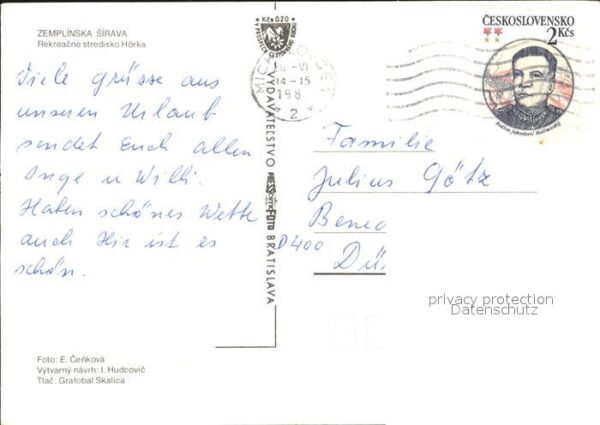 ZEMPLÍNSKA ŠÍRAVA
Rekreačné stredisko Hôrka
Viele grüsse aus
unseren Urlaub
sendet Euch allen
Inge u Willi.
Haben schönes Wette
auch Hir ist es
schön.
Foto: E. Čeňková
Výtvarný návrh: I. Hudcovič
Tlač: Grafobal Skalica
Kčs 0.20
VYDAVATEĽSTVO PRESSFOTO BRATISLAVA
14-15
198
2
ČESKOSLOVENSKO
2 Kčs
Rodion Jakovlevič Malinovskij
Familie
Julius Götz
Bene
D400
Dü
privacy protection
Datenschutz